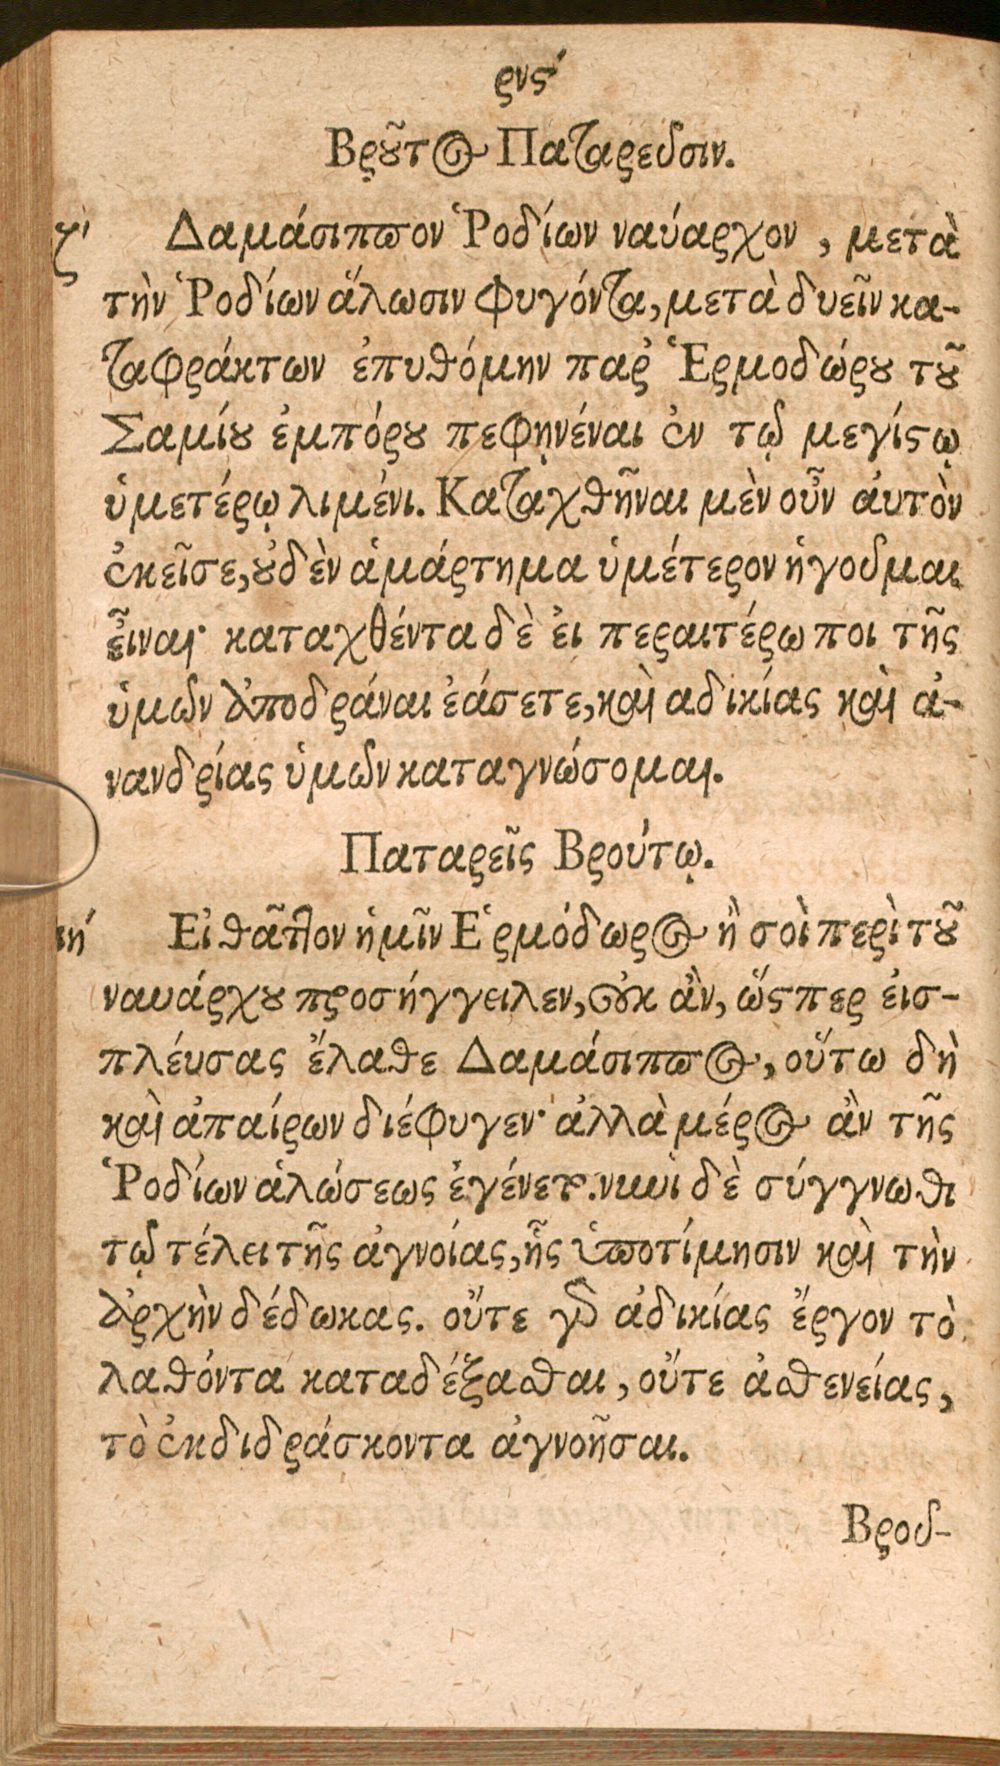 ρνϛʹ
Βρȣ͂τος Παταρεῦσιν.
ζʹ Δαμάσιππον Ῥοδίων ναύαρχον, μετὰ
τὴν Ῥοδίων ἅλωσιν φυγόντα, μετὰ δυεῖν κα-
ταφράκτων ἐπυθόμην παρ' Ἑρμοδώρȣ τȣ͂
Σαμίȣ ἐμπόρȣ πεφηνέναι ἐν τῷ μεγίϛῳ
ὑμετέρῳ λιμένι. Καταχθῆναι μὲν οὖν ἀυτὸν
ἐκεῖσε, ȣ̓δὲν ἁμάρτημα ὑμέτερον ἡγοῦμαι
εἶναι· καταχθέντα δὲ ἐι περαιτέρω ποι τῆς
ὑμῶν ἀποδράναι ἐάσετε, καὶ αδικίας καὶ ἀ-
νανδρίας ὑμῶν καταγνώσομαι.
Παταρεῖς Βρούτῳ.
ιηʹ Εἰ θᾶττον ἡμῖν Ἑρμόδωρος ἢ σοὶ περὶ τȣ͂
ναυάρχȣ προσήγγειλεν, οὐκ ἂν, ὥςπερ ἐισ-
πλέυσας ἔλαθε Δαμάσιππος, οὕτω δὴ
καὶ ἀπαίρων διέφυγεν· ἀλλὰ μέρος ἂν τῆς
Ῥοδίων ἁλώσεως ἐγένετο. νυνὶ δὲ σύγγνωθι
τῷ τέλει τῆς ἀγνοίας, ἧς ὑποτίμησιν καὶ τὴν
ἀρχὴν δέδωκας. οὔτε γὰρ ἀδικίας ἔργον τὸ
λαθόντα καταδέξασθαι, οὔτε ἀσθενείας,
τὸ ἐκδιδράσκοντα ἀγνοῆσαι.
Βροῦ-